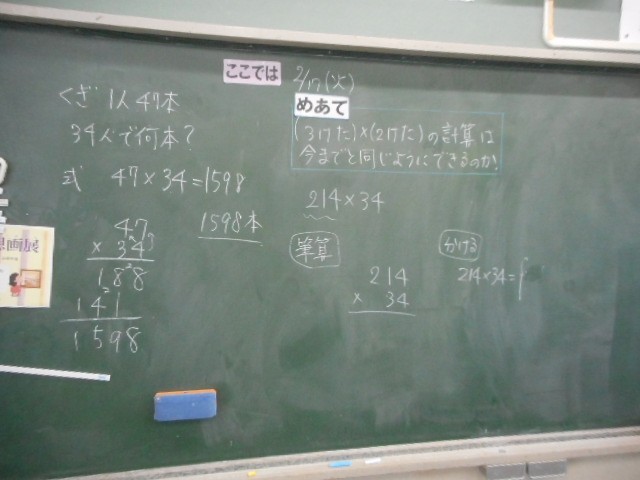 ここでは
2/17(火)
くぎ 1人47本
34人で何本?
式 47×34=1598
1598本
47
×34
188
141
1598
めあて
(3けた)×(2けた)の計算は
今までと同じようにできるのか。
214×34
筆算
214
× 34
かける
214×34=
画展